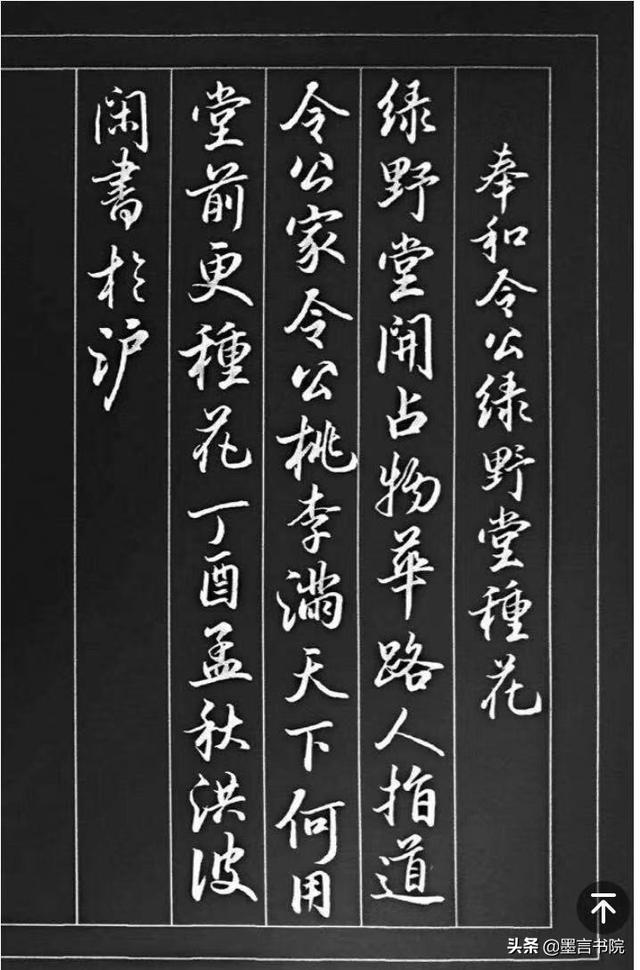 奉和令公绿野堂種花
绿野堂開占物華路人指道
令公家令公桃李满天下何用
堂前更種花丁酉孟秋洪波
闲書於沪
头条@墨言书院